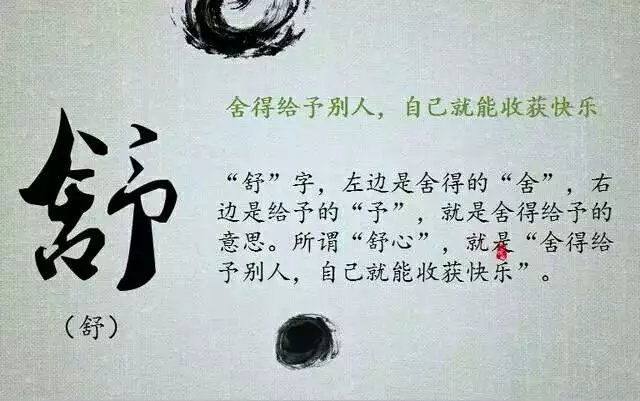 舍得给予别人，自己就能收获快乐
舒
“舒”字，左边是舍得的“舍”，右
边是给予的“予”，就是舍得给予的
意思。所谓“舒心”，就是“舍得给
予别人，自己就能收获快乐”。
（舒）